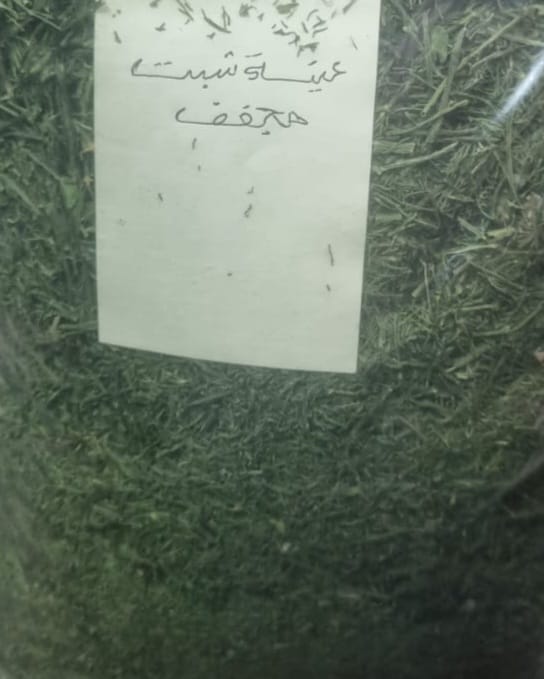 عينة شبت
مجفف